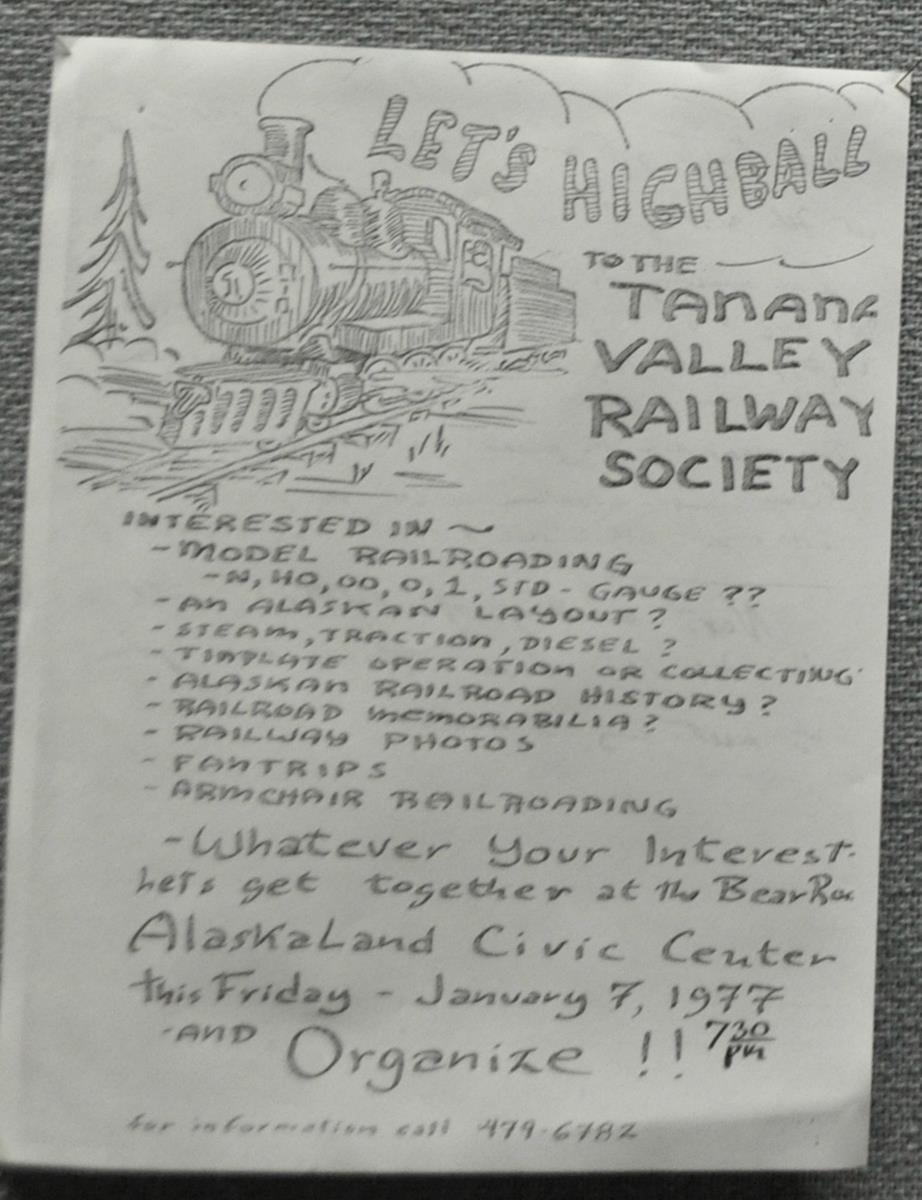 LET'S
HIGHBALL
TO THE
TANANA
VALLEY
RAILWAY
SOCIETY
51
INTERESTED IN ~
- MODEL RAILROADING
- N, HO, OO, O, 1, STD - GAUGE ??
- AN ALASKAN LAYOUT ?
- STEAM, TRACTION, DIESEL ?
- TINPLATE OPERATION OR COLLECTING
- ALASKAN RAILROAD HISTORY ?
- RAILROAD MEMORABILIA ?
- RAILWAY PHOTOS
- FANTRIPS
- ARMCHAIR RAILROADING
- Whatever Your Interest.
Let's get together at the Bear
AlaskaLand Civic Center
this Friday - January 7, 1977
- AND Organize !! 730 pm
for information call 479-6782